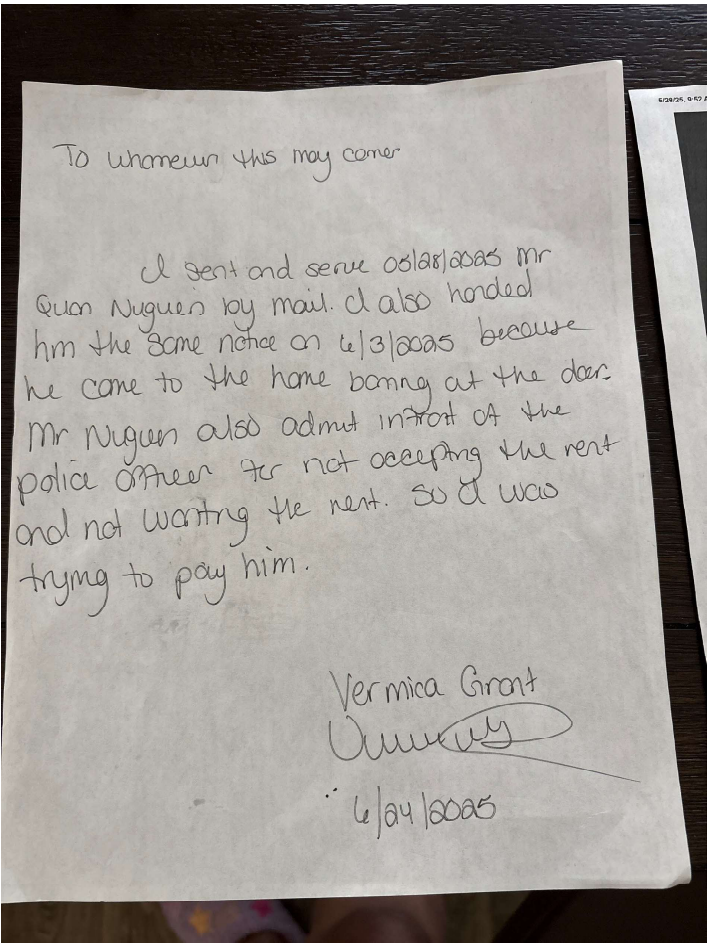 To whomeun this may comer
I sent and serve 05/28/2025 Mr
Quan Nuguen by mail. I also handed
him the same notice on 6/3/2025 because
he came to the home baning at the door.
Mr Nuguen also admit infrot of the
police officer for not accepting the rent
and not wanting the rent. So I was
trying to pay him.
Vermica Grant
6/24/2025
5/29/25, 9:52 A